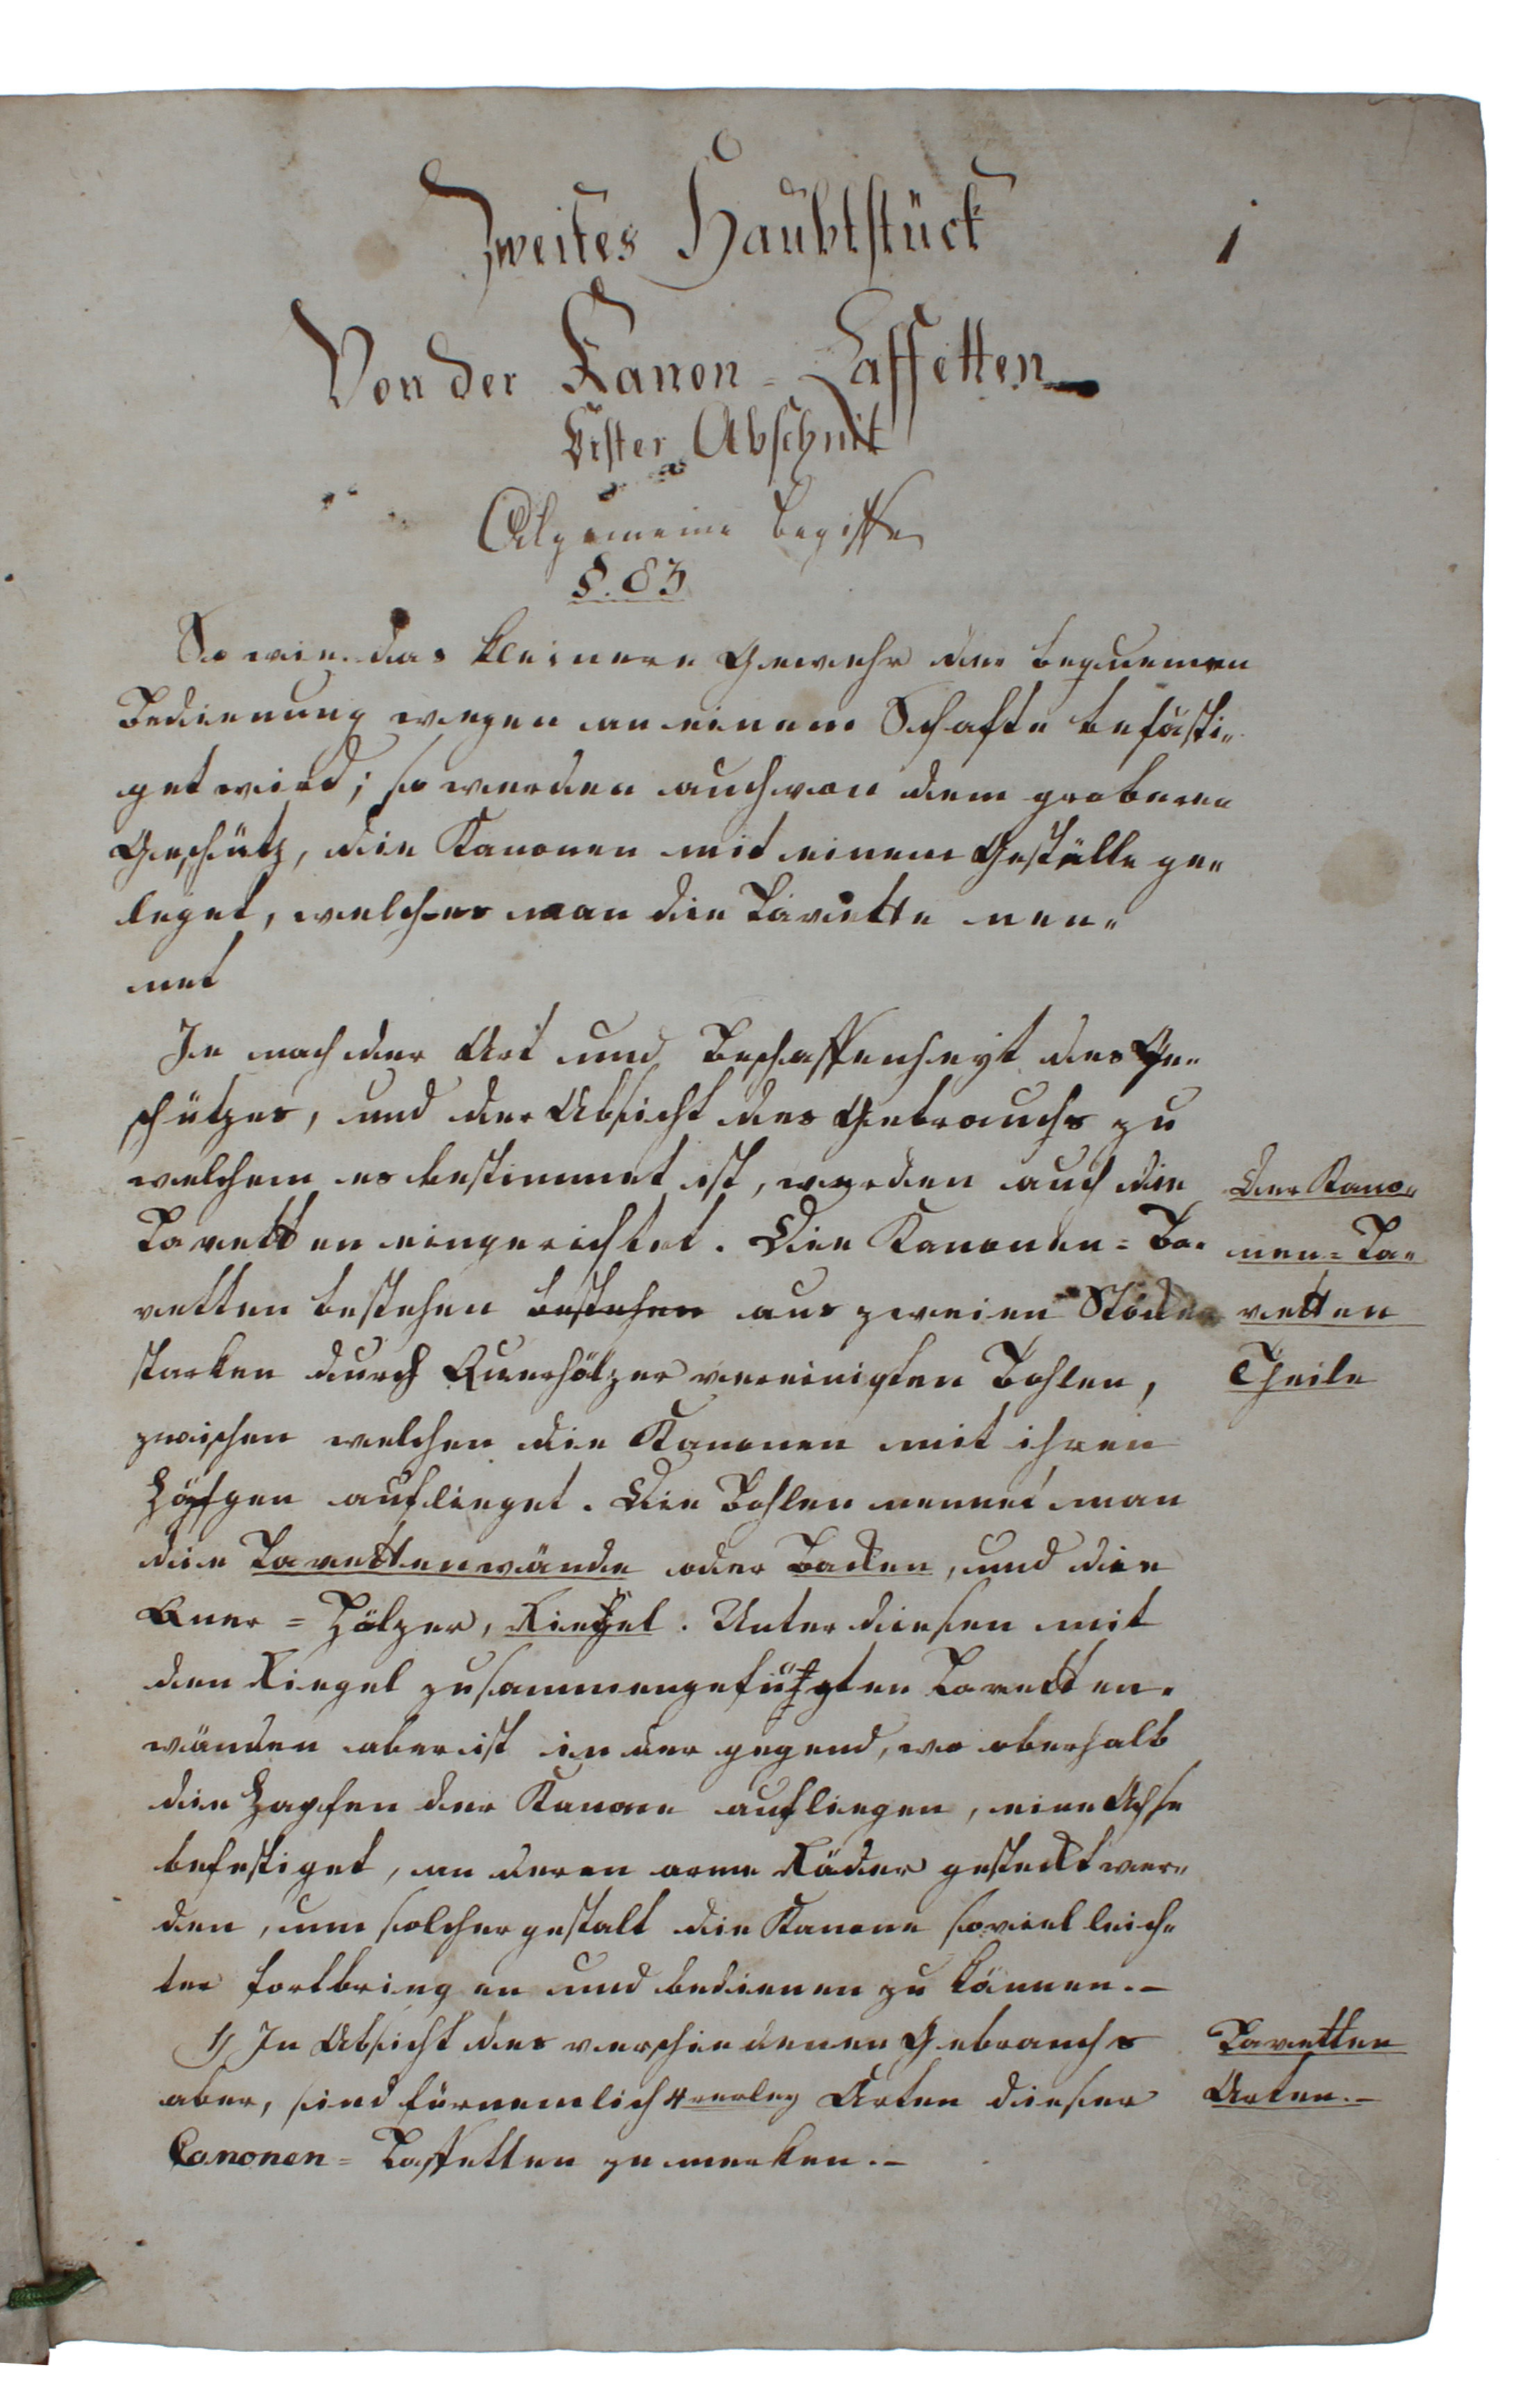 Zweites Haubtstück
1
Von der Kanon=Laffetten
Erster Abschnit
Algemeine Begiffe
§. 83
So wie das kleinere Gewehr der bequemen
Bedienung wegen an einem Schafte befästi„
get wird; so werden auch von dem groberen
Geschütz, die Kanonen mit einem Geställe ge„
leget, welches man die Lavette nen„
net
Je nach der Art und Beschaffenheyt des Ge„
schützes, und der Absicht des Gebrauchs zu
welchem es bestimmet ist, werden auch die
Lavetten eingerichtet. Die Kanonen=La„
vetten bestehen bestehen aus zweien
starken durch Querhölzer vereinigten Bohlen,
zwischen welchen die Kanonen mit ihren
auflieget. Die Bohlen nennet man
die Lavettenwände oder Backen, und die
Quer=Hölzer, Riegel. Unter diesen mit
den Riegel zusammengefügten Lavetten„
wänden aber ist in der gegend, wo oberhalb
die Zapfen der Kanone aufliegen, eine Achse
befestiget, an deren arme Räder gesteckt wer„
den, um solchergestalt die Kanone soviel leich„
ter fortbringen und bedienen zu können.–
1/ In Absicht des verschiedenen Gebrauchs
aber, sind fürnemlich 4rerley Arten dieser
Canonen=Laffetten zu merken.–
Der Kano„
nen=La„
vetten
Theile
Lavetten
Arten.–